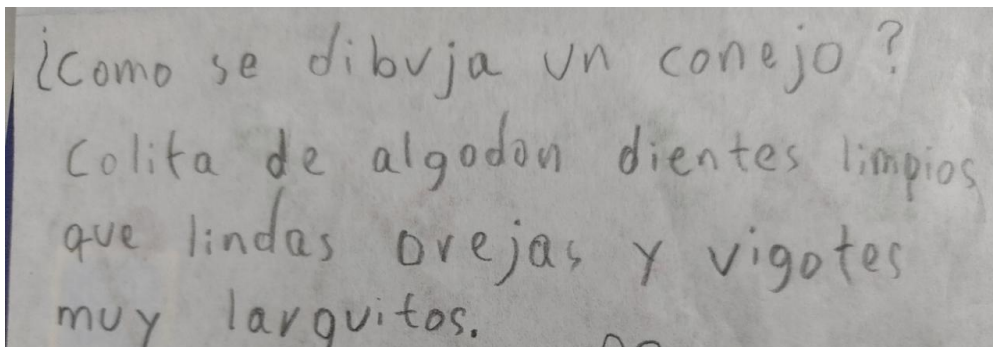 ¿Como se dibuja un conejo?
Colita de algodon dientes limpios
que lindas orejas y vigotes
muy larguitos.